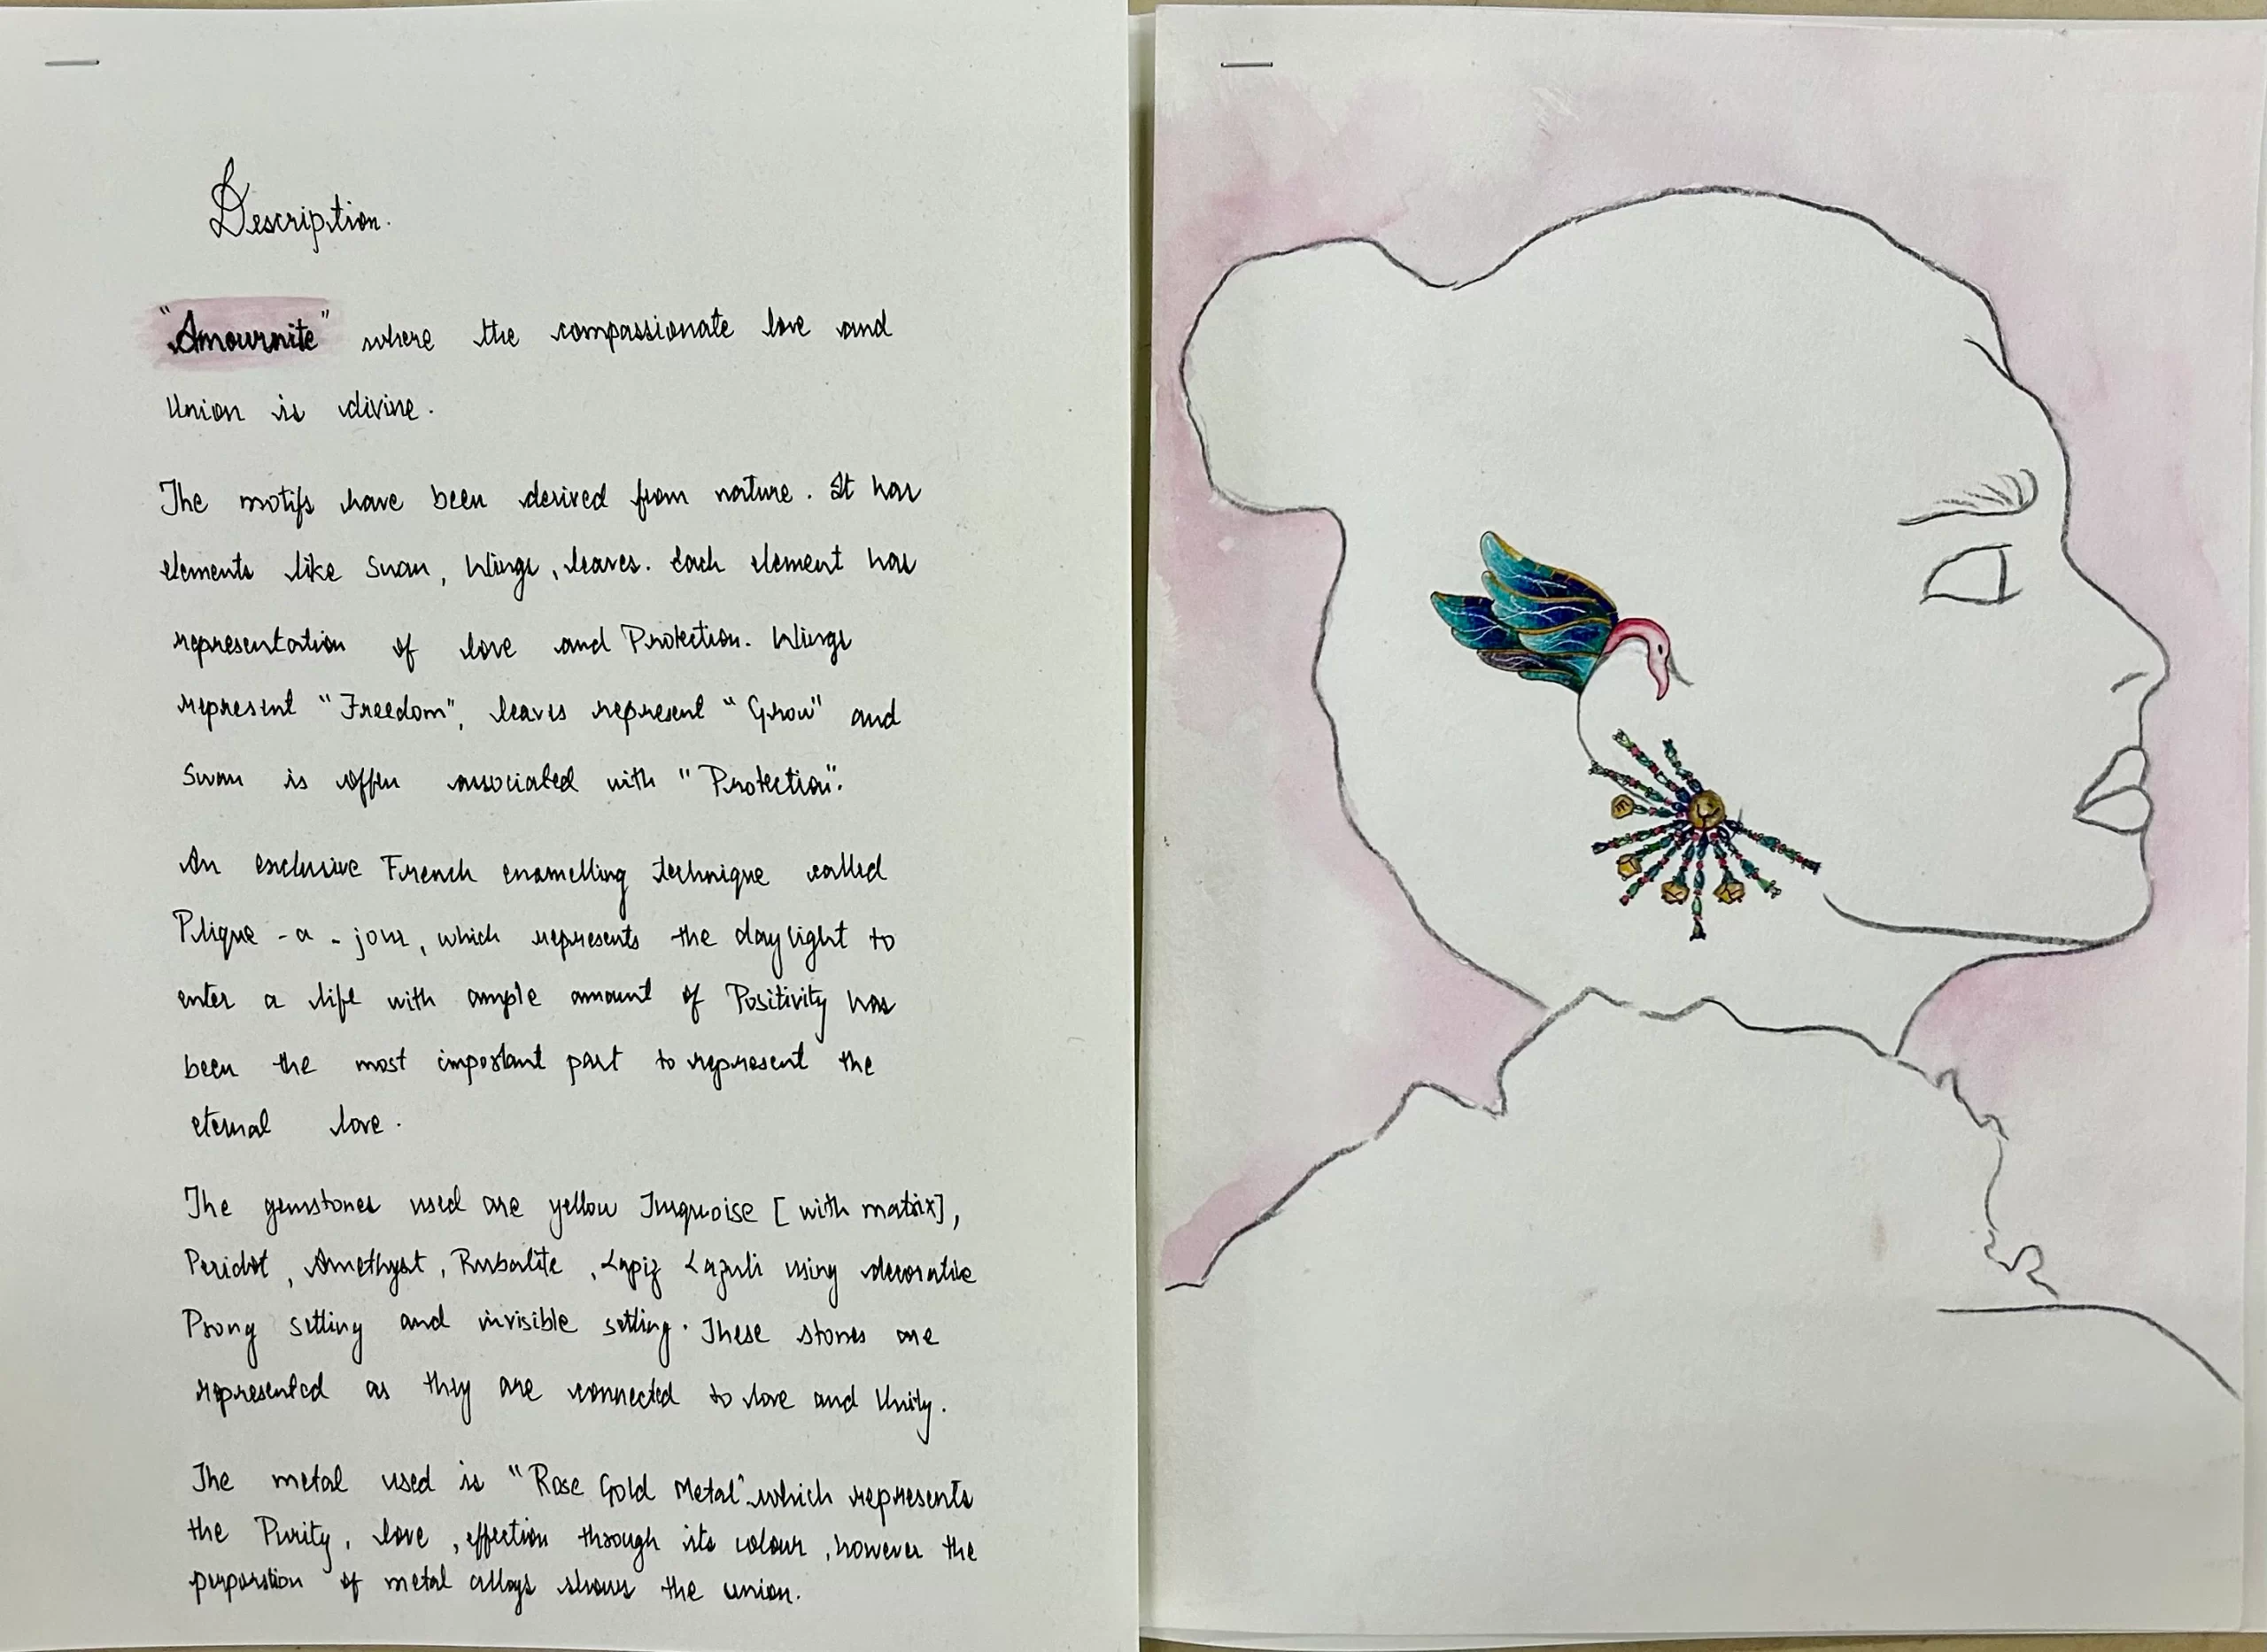 Description.
"Amournite" where the compassionate love and
Union is divine.
The motifs have been derived from nature. It has
elements like Swan, Wings, leaves. Each element has
representation of love and Protection. Wings
represent "Freedom", leaves represent "Grow" and
Swan is offen associated with "Protection".
An exclusive French enamelling technique called
Plique-a-jour, which represents the daylight to
enter a life with ample amount of Positivity has
been the most important part to represent the
eternal love.
The gemstones used are yellow Turquoise [with matrix],
Peridot, Amethyst, Rubalite, Lapiz Lazuli using decorative
Prong setting and invisible setting. These stones are
represented as they are connected to love and Unity.
The metal used is "Rose Gold Metal" which represents
the Purity, love, effection through its colour, however the
perporstion of metal alloys shows the union.